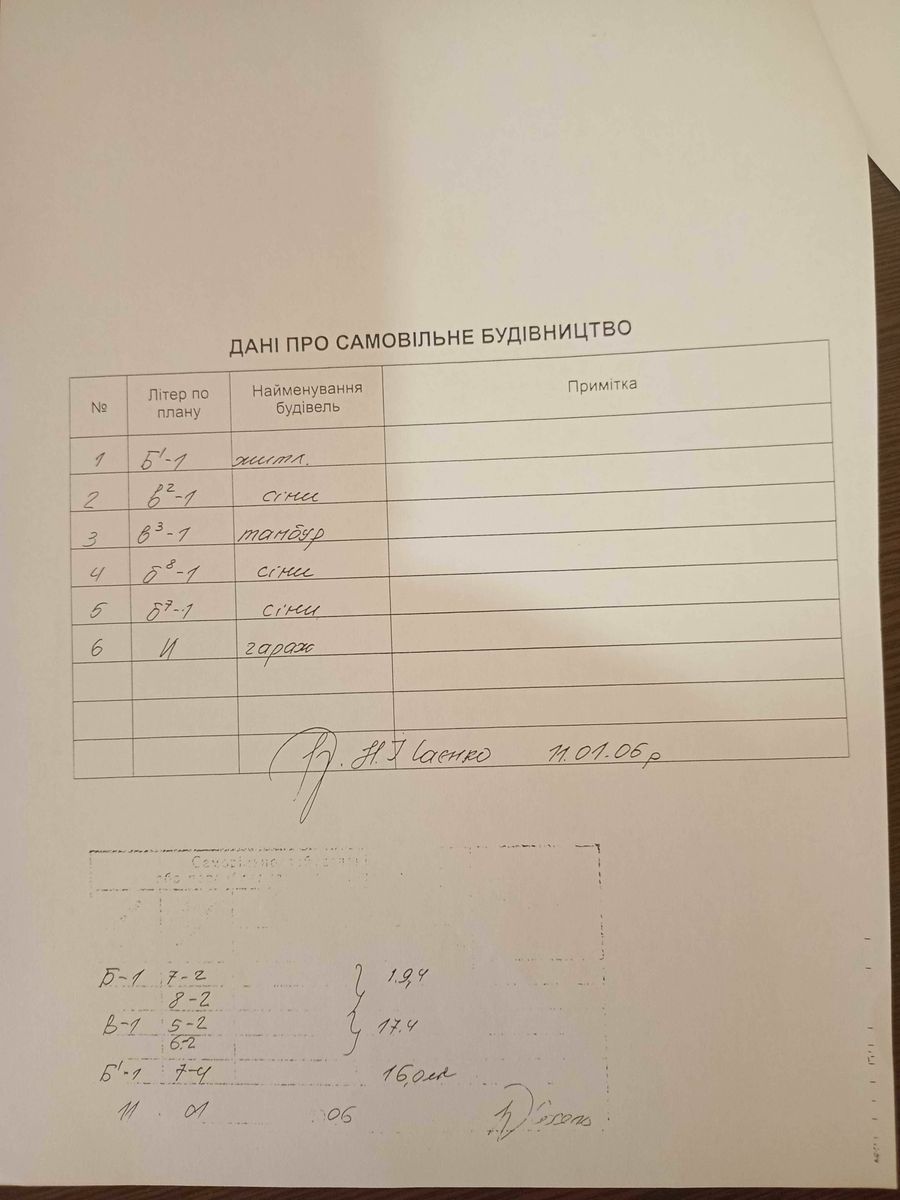 ДАНІ ПРО САМОВІЛЬНЕ БУДІВНИЦТВО
№ Літер по плану Найменування будівель Примітка
1 Б'-1 житл.
2 в²-1 сіни
3 в³-1 тамбур
4 б⁸-1 сіни
5 б⁷-1 сіни
6 И гараж
Н.Ісаєнко 11.01.06 р
Б-1 7-2 19,4
8-2
В-1 5-2 17.4
6-2
Б'-1 7-4 16,0
11 01 06